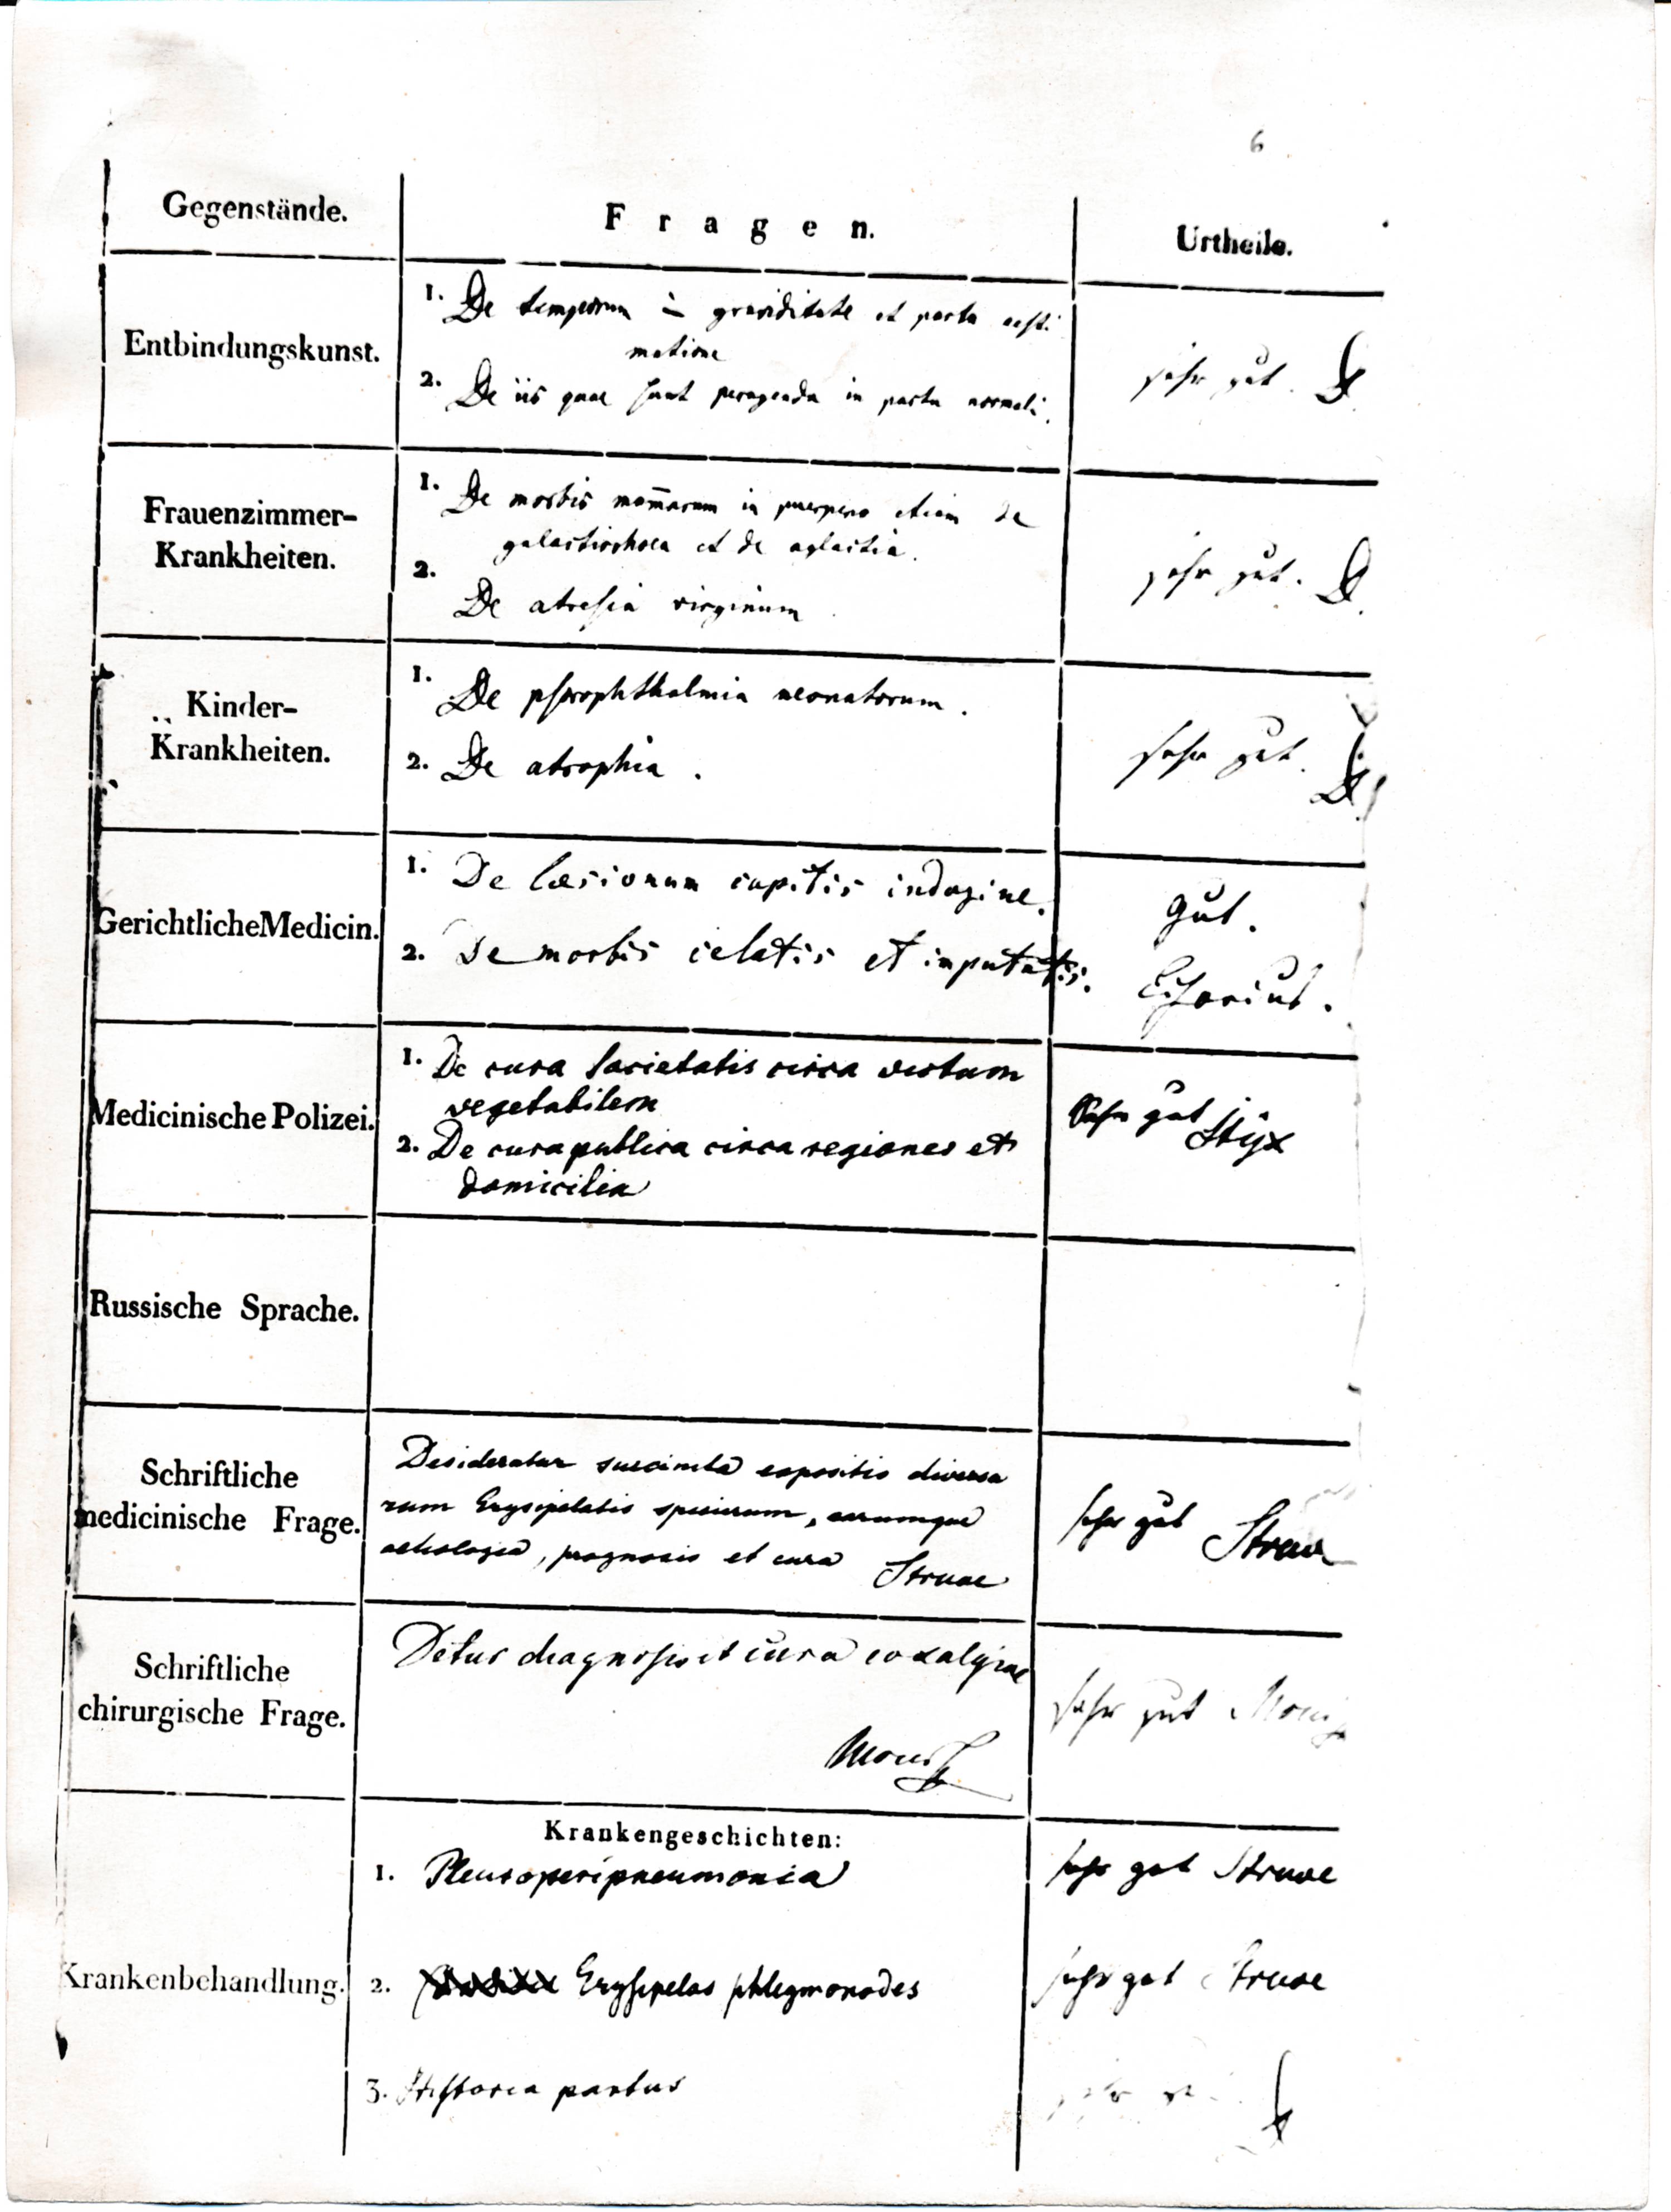 6
Gegenstände.
Fragen.
Urtheile.
Entbindungskunst.
1. De temporum in graviditate et partu aesti-
matione
2. De iis quae sunt peragenda in partu normali.
sehr gut.
Frauenzimmer-
Krankheiten.
1. De morbis mam̄arum in puerperio etiam de
galactirrhoea et de aglactia.
2.
De atresia virginum
sehr gut.
Kinder-
Krankheiten.
1. De psorophthalmia neonatorum.
2. De atrophia.
sehr gut.
Gerichtliche Medicin.
1. De læsionum capitis indagine.
2. De morbis celatis et imputatis.
gut.
Medicinische Polizei.
1. De cura societatis circa victum
vegetabilem
2. De cura publica circa regiones et
domicilia
Sehr gut
Styx
Russische Sprache.
Schriftliche
medicinische Frage.
Desideratur succincta expositio diversa
rum Erysipelatis specierum, earumque
aetiologia, prognosis et cura Struve
sehr gut Struve
Schriftliche
chirurgische Frage.
Detur diagnosis et cura coxalgiae
Moier
sehr gut Moier
Krankenbehandlung.
Krankengeschichten:
1. Pleuroperipneumonia
sehr gut Struve
2. Erysipelas phlegmonodes
sehr gut Struve
3. Historia partus